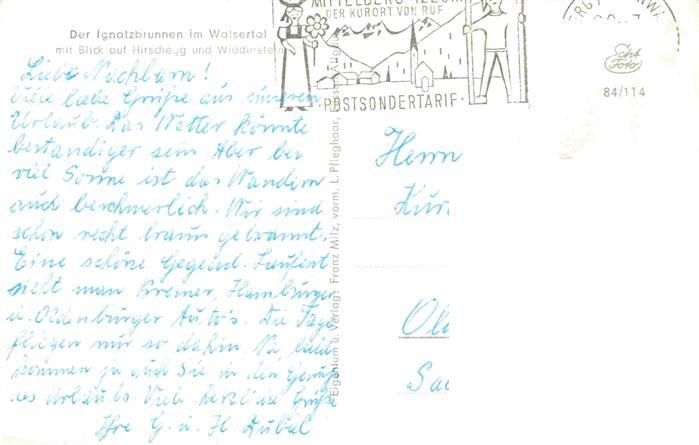 Der Ignatzbrunnen im Walsertal
mit Blick auf Hirschegg und Widderstein
Liebe Nachbarn!
Viele liebe Grüße aus unseren
Urlaub. Das Wetter könnte
beständiger sein Aber bei
viel Sonne ist das Wandern
auch beschwerlich. Wir sind
schon recht braun gebrannt.
Eine schöne Gegend. Laufend
sieht man Bremer, Hamburger
u. Oldenburger Auto's. Die Tage
fliegen nur so dahin. Na, bald
kommen ja auch Sie in den Genuß
des Urlaubs. Viele herzliche Grüße
Ihre G. u. H.
Eigentum u. Verlag: Franz Milz, vorm. L. Pflieghaar,
MITTELBERG
DER KURORT VON RUF
POSTSONDERTARIF
Echt
Foto
84/114
Herrn
Kur
Ol
Sa